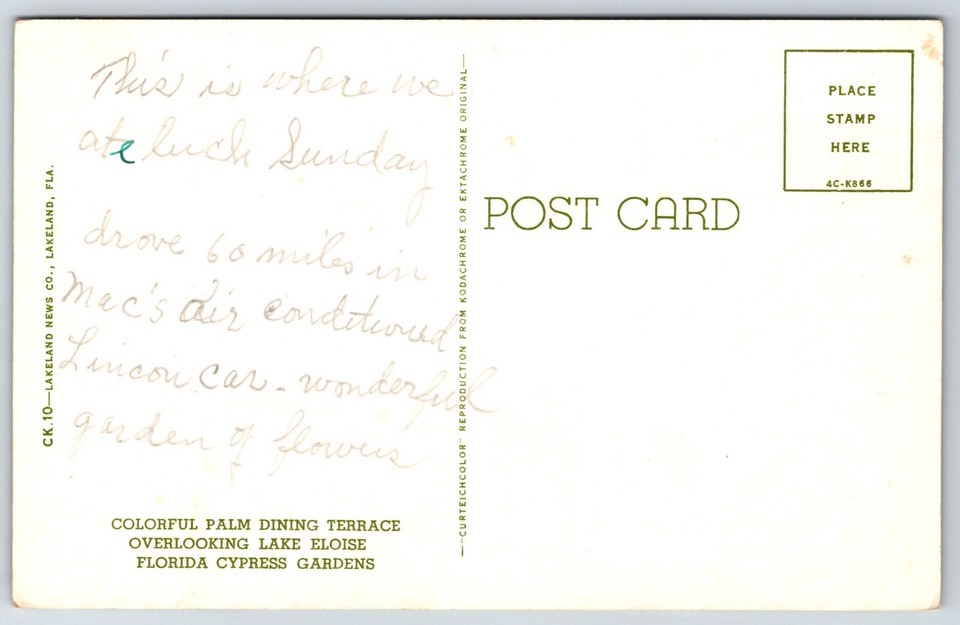 This is where we
ate luch Sunday
drove 60 miles in
Mac's air conditioned
Lincoln car - wonderful
garden of flowers
COLORFUL PALM DINING TERRACE
OVERLOOKING LAKE ELOISE
FLORIDA CYPRESS GARDENS
CK.10—LAKELAND NEWS CO., LAKELAND, FLA.
—"CURTEICHCOLOR" REPRODUCTION FROM KODACHROME OR EKTACHROME ORIGINAL—
POST CARD
PLACE
STAMP
HERE
4C-K866